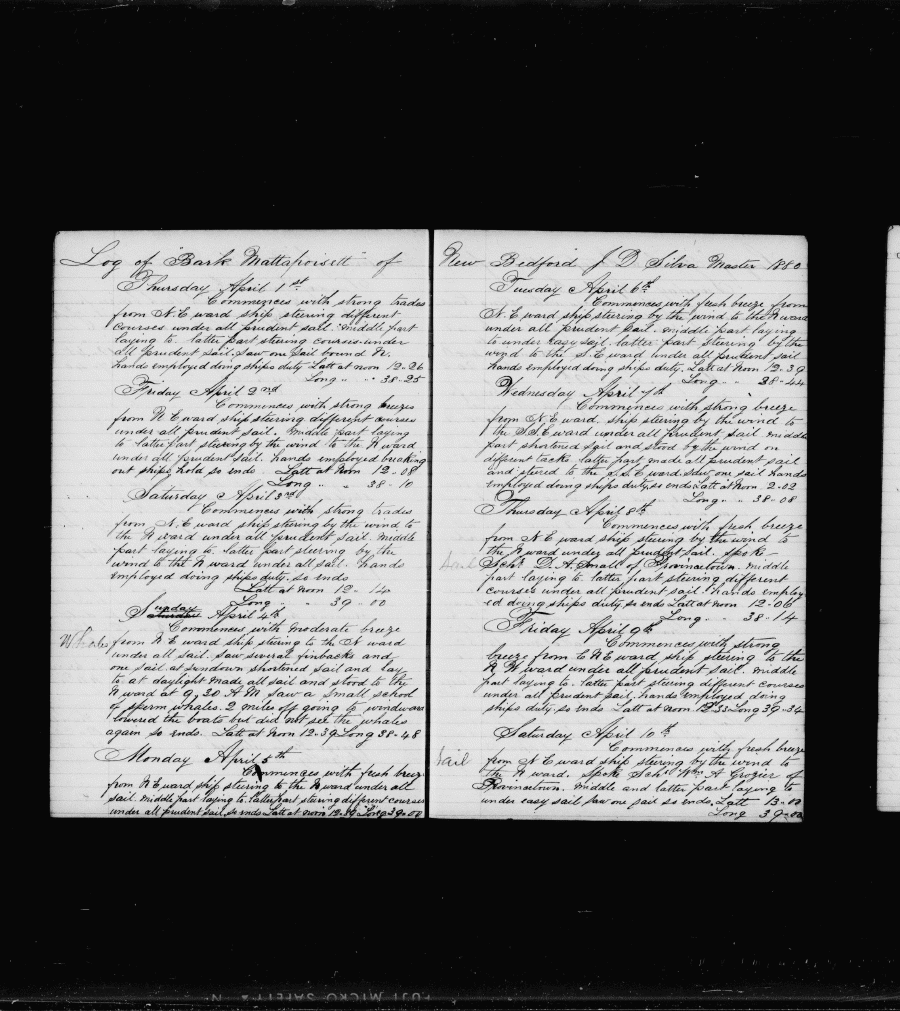 Log of "Bark Mattapoisett" of
Thursday April 1st
Commences with strong trades
from N.E ward ship steering different
courses under all prudent sail. middle part
laying to. latter part steering courses under
all prudent sail. Saw one sail bound N.
hands employed doing ships duty Latt at noon 12-26
Long " " 38-25
Friday April 2nd
Commences with strong breezes
from N E ward ship steering different courses
under all prudent sail. middle part laying
to latter part steering by the wind to the N ward
under all prudent sail. hands employed breaking
out ships hold so ends. Latt at noon 12-08
Long " " 38-10
Saturday April 3rd
Commences with strong trades
from N.E ward ship steering by the wind to
the N ward under all prudent sail. middle
part laying to. latter part steering by the
wind to the N ward under all sail. hands
employed doing ships duty. so ends
Latt at noon 12-14
Long " " 39-00
Sunday April 4th
Commences with moderate breeze
Whales from N E ward ship steering to the N ward
under all sail. Saw several finbacks and
one sail. at sundown shortened sail and lay
to, at daylight made all sail and stood to the
N ward at 9,20 A M saw a small school
of sperm whales. 2 miles off going to windward
lowered the boats but did not see the whales
again so ends. Latt at noon 12-39 Long 38-48
Monday April 5th
Commences with fresh breeze
from N E ward ship steering to the N ward under all
sail. middle part laying to. latter part steering different courses
under all prudent sail, so ends Latt at noon 12-39 Long 39-00
New Bedford J D Silva Master 1880
Tuesday April 6th
Commences with fresh breeze from
N.E ward ship steering by the wind to the N ward
under all prudent sail. middle part laying
to under easy sail. latter part steering by the
wind to the S.E ward under all prudent sail
hands employed doing ships duty, Latt at noon 12-39
Long " " 38-44
Wednesday April 7th
Commences with strong breeze
from N.E ward. ship steering by the wind to
the S.S.E ward under all prudent sail middle
part shortened sail and stood by the wind on
different tacks latter part made all prudent sail
and steered to the S.S.E ward. Saw one sail hands
employed doing ships duty, so ends Latt at noon 2-02
Long " " 38-08
Thursday April 8th
Commences with fresh breeze
from N E ward ship steering by the wind to
the N ward under all prudent sail. Spoke
Sail Schr D. A. Small of Provincetown. middle
part laying to. latter part steering different
courses under all prudent sail. hands employ-
ed doing ships duty, so ends Latt at noon 12-06
Long " " 38-14
Friday April 9th
Commences with strong
breeze from E N E ward ship steering to the
N W ward under all prudent sail. middle
part laying to. latter part steering different courses
under all prudent sail, hands employed doing
ships duty, so ends Latt at noon 12-33 Long 39-34
Saturday April 10th
Commences with fresh breeze
Sail from N E ward ship steering by the wind to
the N ward. Spoke Schr Wm A Grozier of
Provincetown. middle and latter part laying to
under easy sail saw one sail so ends. Latt 13-00
Long 39-00
FUJI MICRO SAFETY